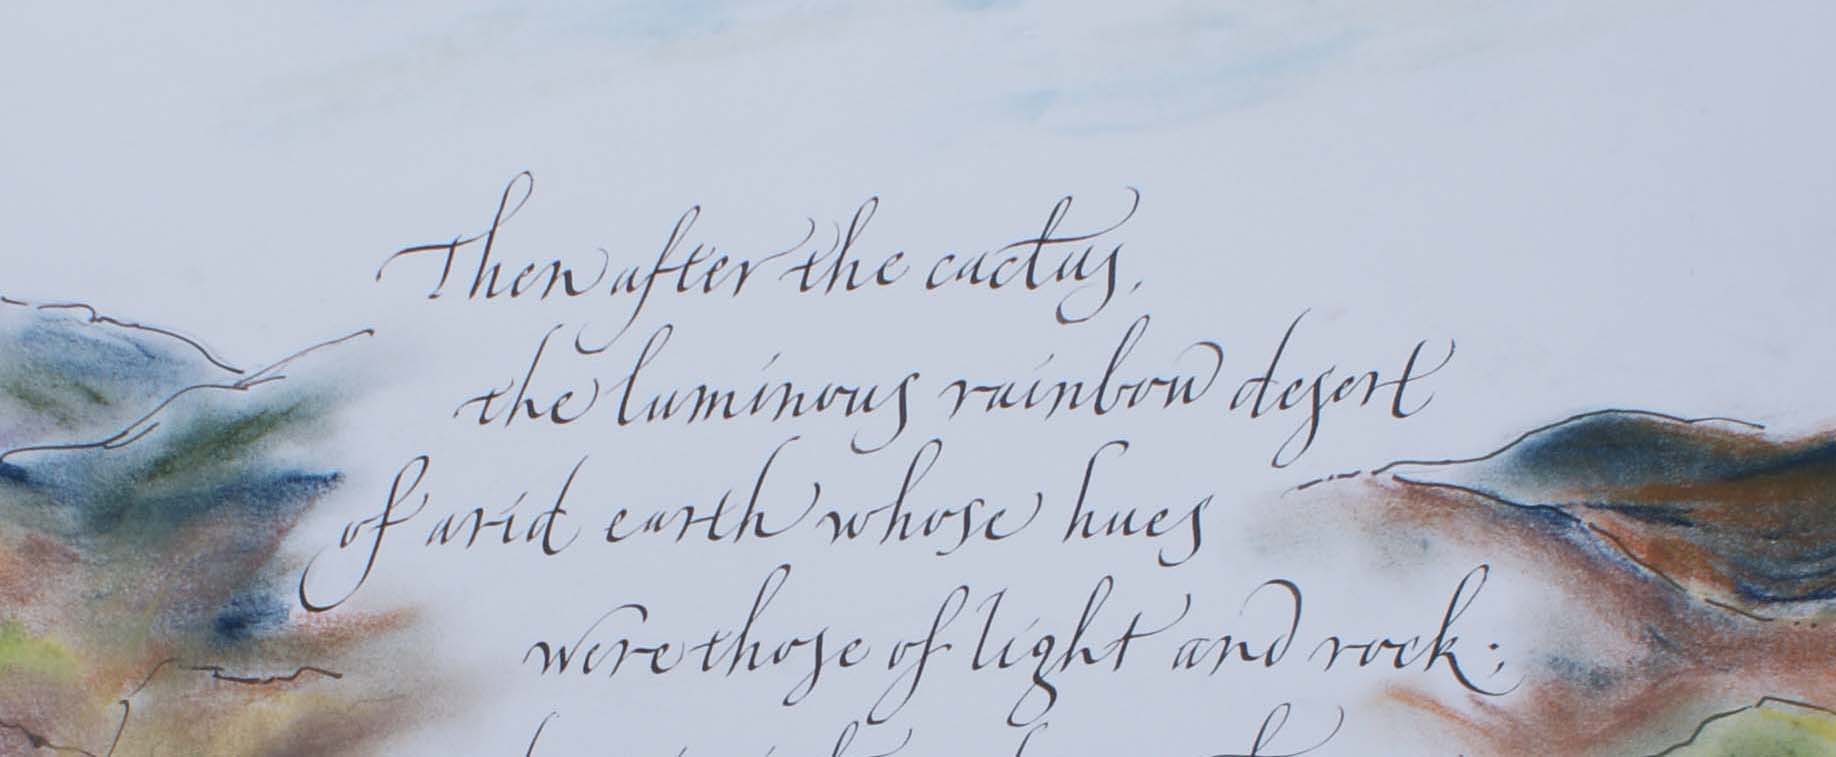 Then after the cactus,
the luminous rainbow desert
of arid earth whose hues
were those of light and rock;